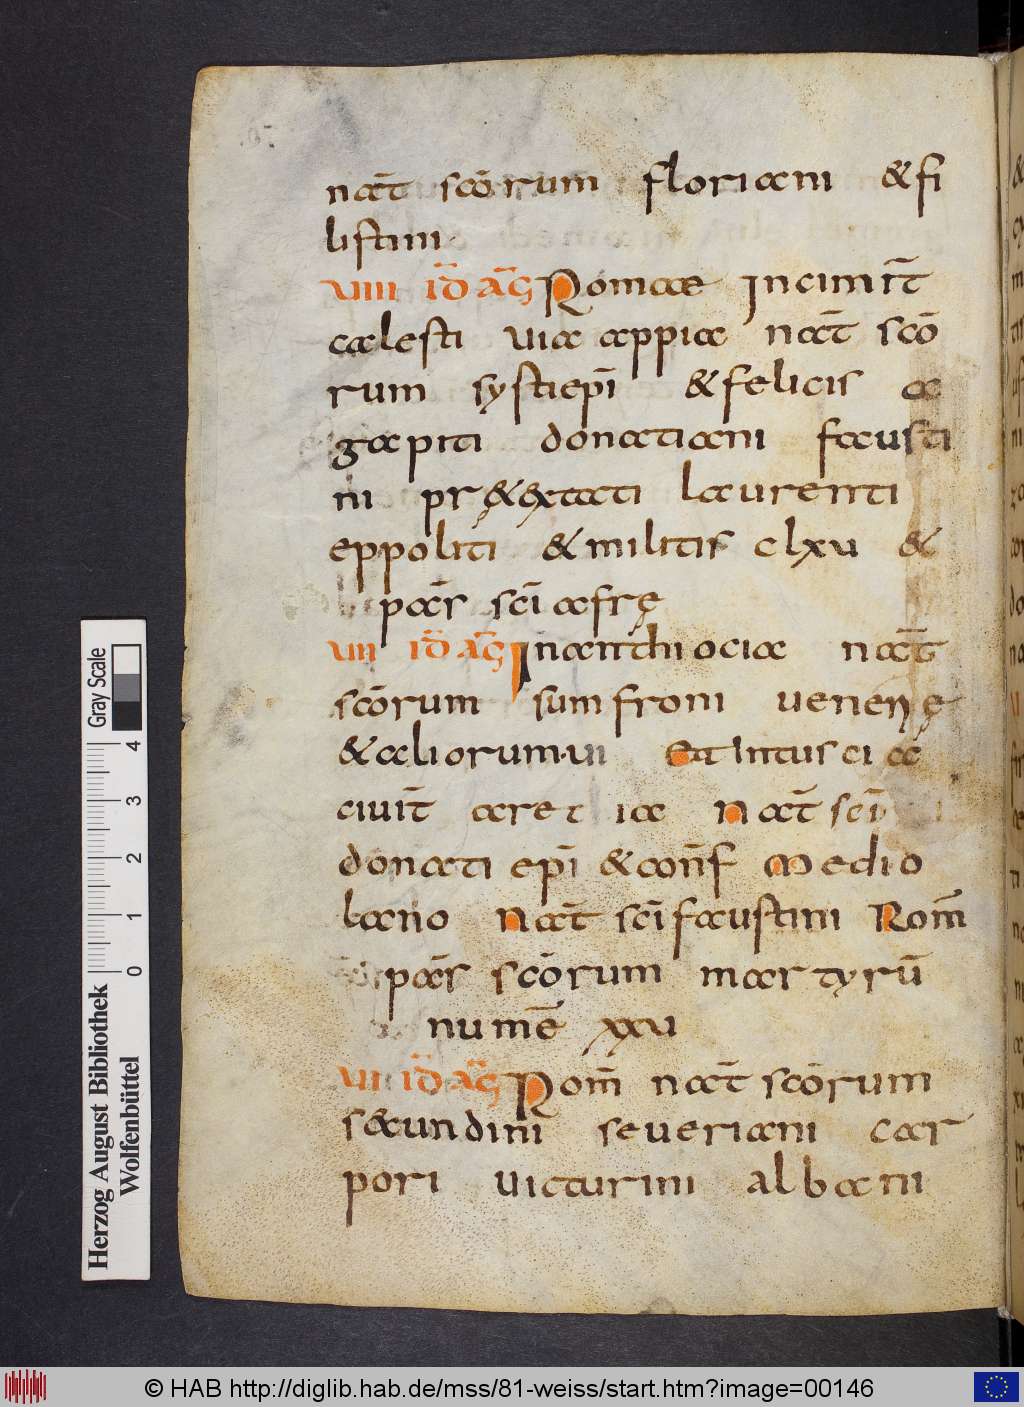 nat̄ scōrum floriani & fi
listini
VIII id̄ aḡ Romae In cimit̄
caelesti via appia nat̄ scō
rum systi ep̄i & felicis a
gapiti donatiani fausti
ni pr&extati laurenti
eppoliti & militis clxv &
pas̄ sc̄i afrę
VII id̄ aḡ In anthiocia nat̄
scōrum sumfroni venerię
& aliorum·vi Et In tuscia
civit̄ aretia Nat̄ sc̄i
donati ep̄i & conf̄ Medio
lano Nat̄ sc̄i faustini Rom̄
pas̄ scōrum martyrū
numē xxv
VI id̄ aḡ Rom̄ nat̄ scōrum
secundini severiani car
pori victurini albani
Gray Scale
4
3
2
1
0
Herzog August Bibliothek
Wolfenbüttel
© HAB http://diglib.hab.de/mss/81-weiss/start.htm?image=00146